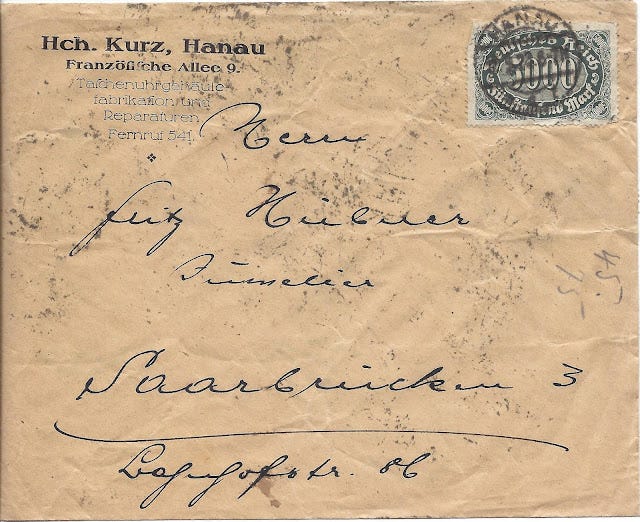 Hch. Kurz, Hanau
Französische Allee 9.
Taschenuhrgehäuse-
fabrikation und
Reparaturen
Fernruf 541.
HANAU
Deutsches Reich
5000
Fünftausend Mark
Herrn
Fritz Hübner
Juwelier
Saarbrücken 3
Bahnhofstr. 86